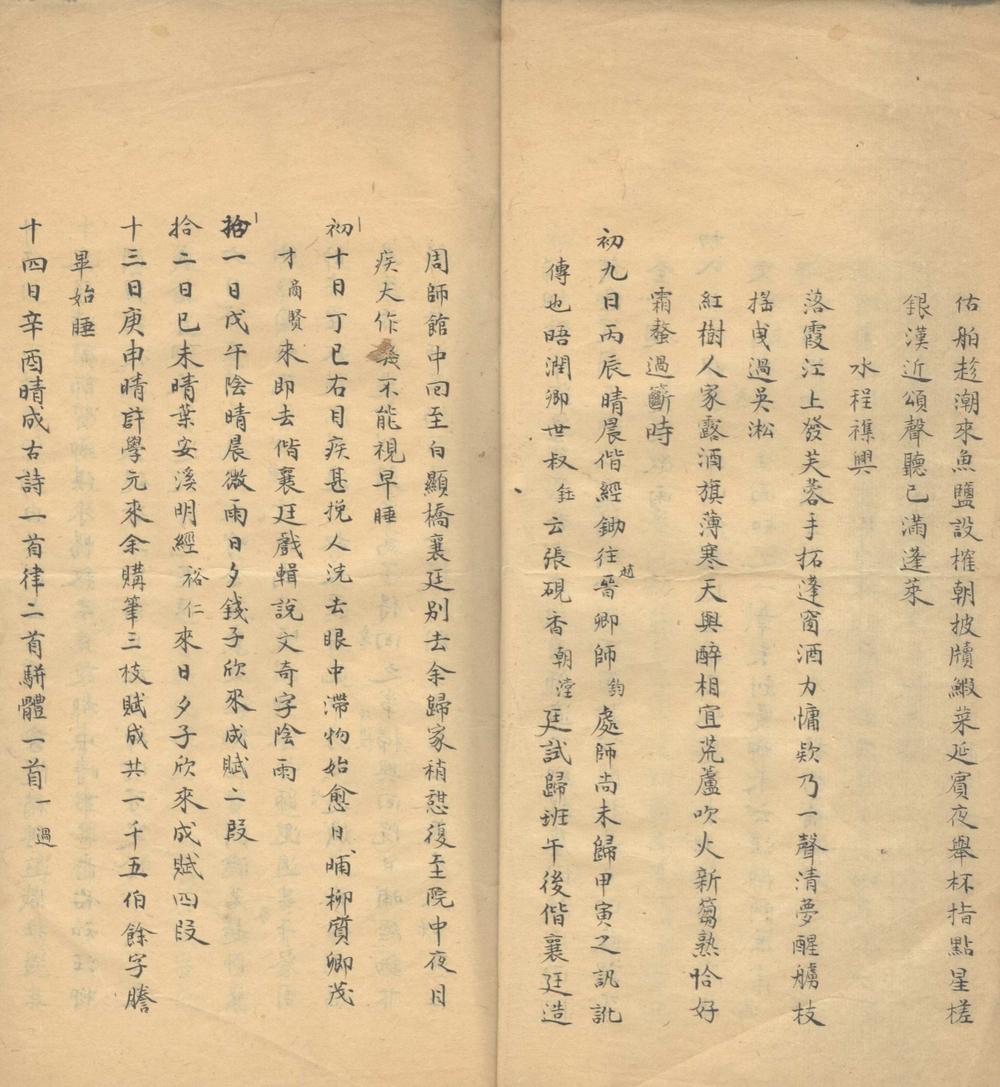 估舶趁潮來魚鹽設榷朝披牘鰕菜延賓夜舉杯指點星槎
銀漢近頌聲聽已滿蓬萊
水程襍興
落霞江上發芙蓉手拓蓬窗酒力慵欵乃一聲清夢醒艣枝
摇曳過吳淞
紅樹人家露酒旗薄寒天與醉相宜荒蘆吹火新篘熟恰好
霜螯過籪時
初九日丙辰晴晨偕經鋤往趙晉卿師鈞處師尚未歸甲寅之訊訛
傳也晤潤卿世叔鈺云張硯香朝瀅廷試歸班午後偕襄廷造
周師館中回至白顯橋襄廷别去余歸家稍憇復至院中夜目
疾大作 不能視早睡
初十日丁巳右目疾甚挽人洗去眼中滯物始愈日晡柳質卿茂
才 賢來即去偕襄廷戲輯說文奇字陰雨
十一日戊午陰晴晨微雨日夕錢子欣來成賦二段
拾二日己未晴葉安溪明經裕仁來日夕子欣來成賦四段
十三日庚申晴許學元來余購筆三枝賦成共一千五伯餘字謄
畢始睡
十四日辛酉晴成古詩一首律二首駢體一首一過